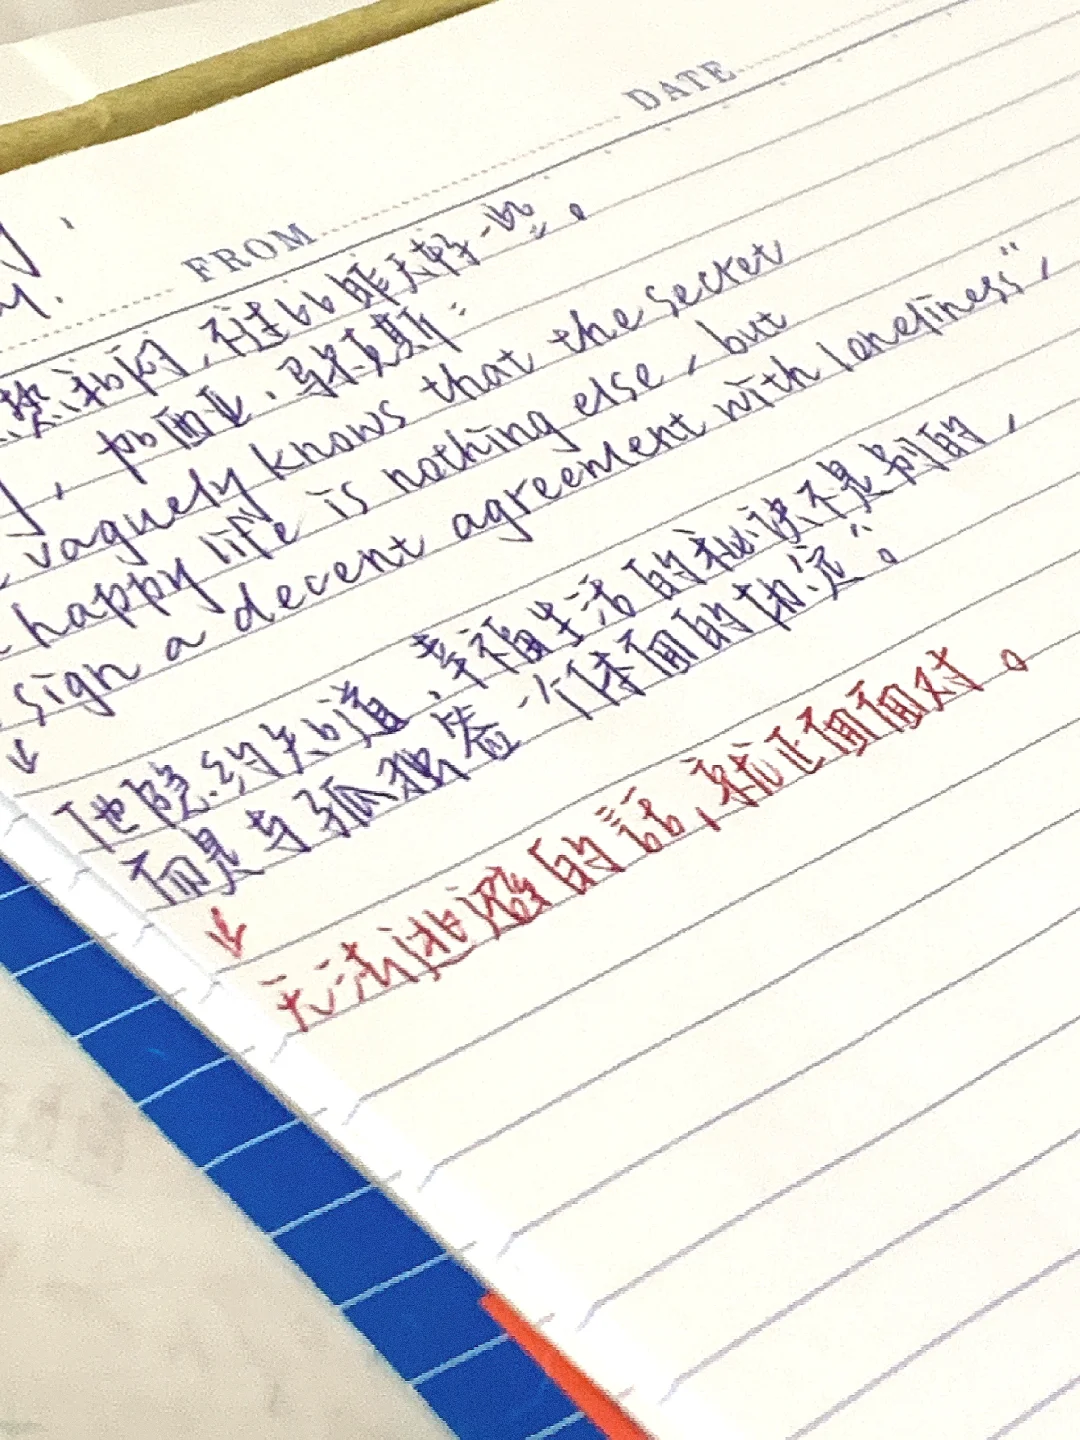 DATE
FROM
热和闷,不过比昨天好一些。
, 加西亚·马尔克斯:
vaguely knows that the secret
happy life is nothing else, but
sign a decent agreement with loneliness",
↓
他隐约知道,幸福生活的秘诀不是别的,
而是与孤独签一个体面的协定"。
↓
无法逃避的話,就正面面对。